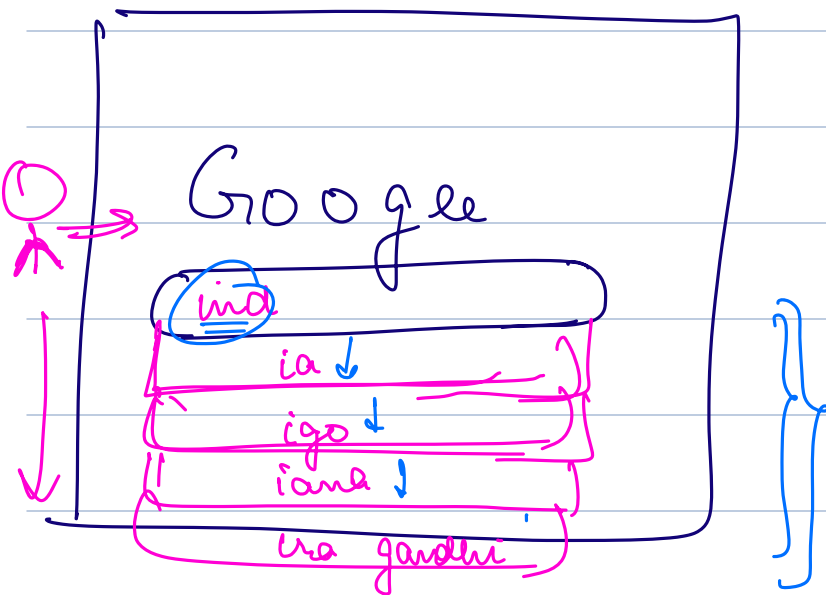 Google
ind
ia
igo
iana
ira gandhi